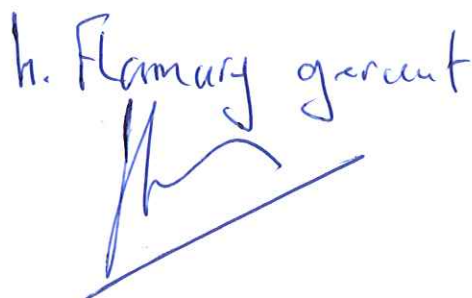 h. Flamary gerant